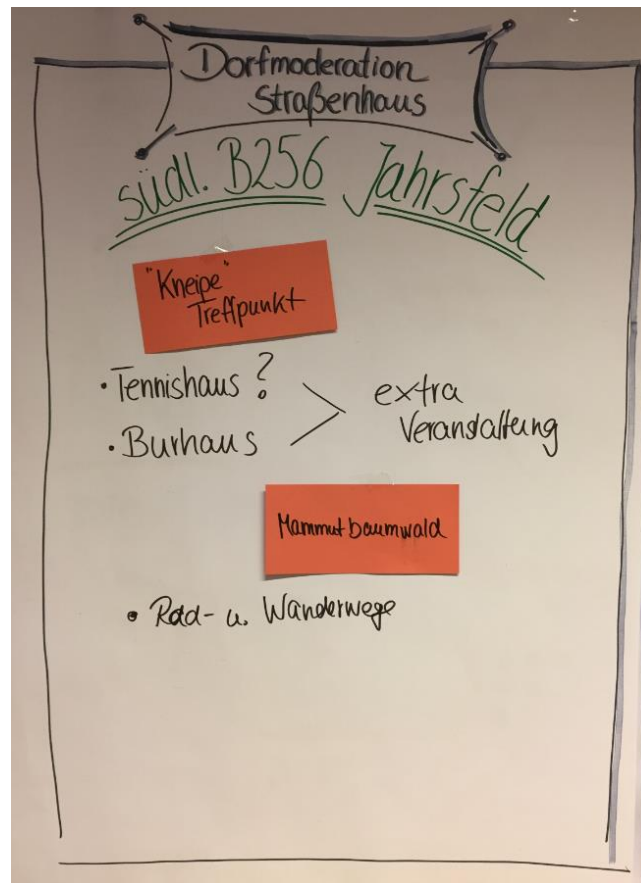 Dorfmoderation
Straßenhaus
südl. B256 Jahrsfeld
"Kneipe"
Treffpunkt
• Tennishaus ?
• Burhaus > extra
Veranstaltung
Mammutbaumwald
• Rad- u. Wanderwege